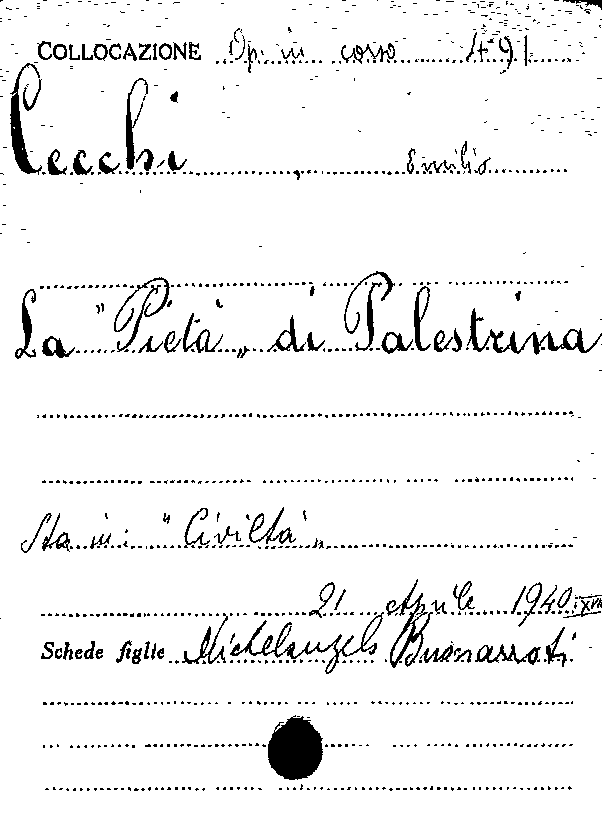 COLLOCAZIONE Op. in corso 491
Cecchi, Emilio
La "Pietà„ di Palestrina
Sta in: "Civiltà„
21 Aprile 1940
Schede figlie Michelangelo Buonarroti